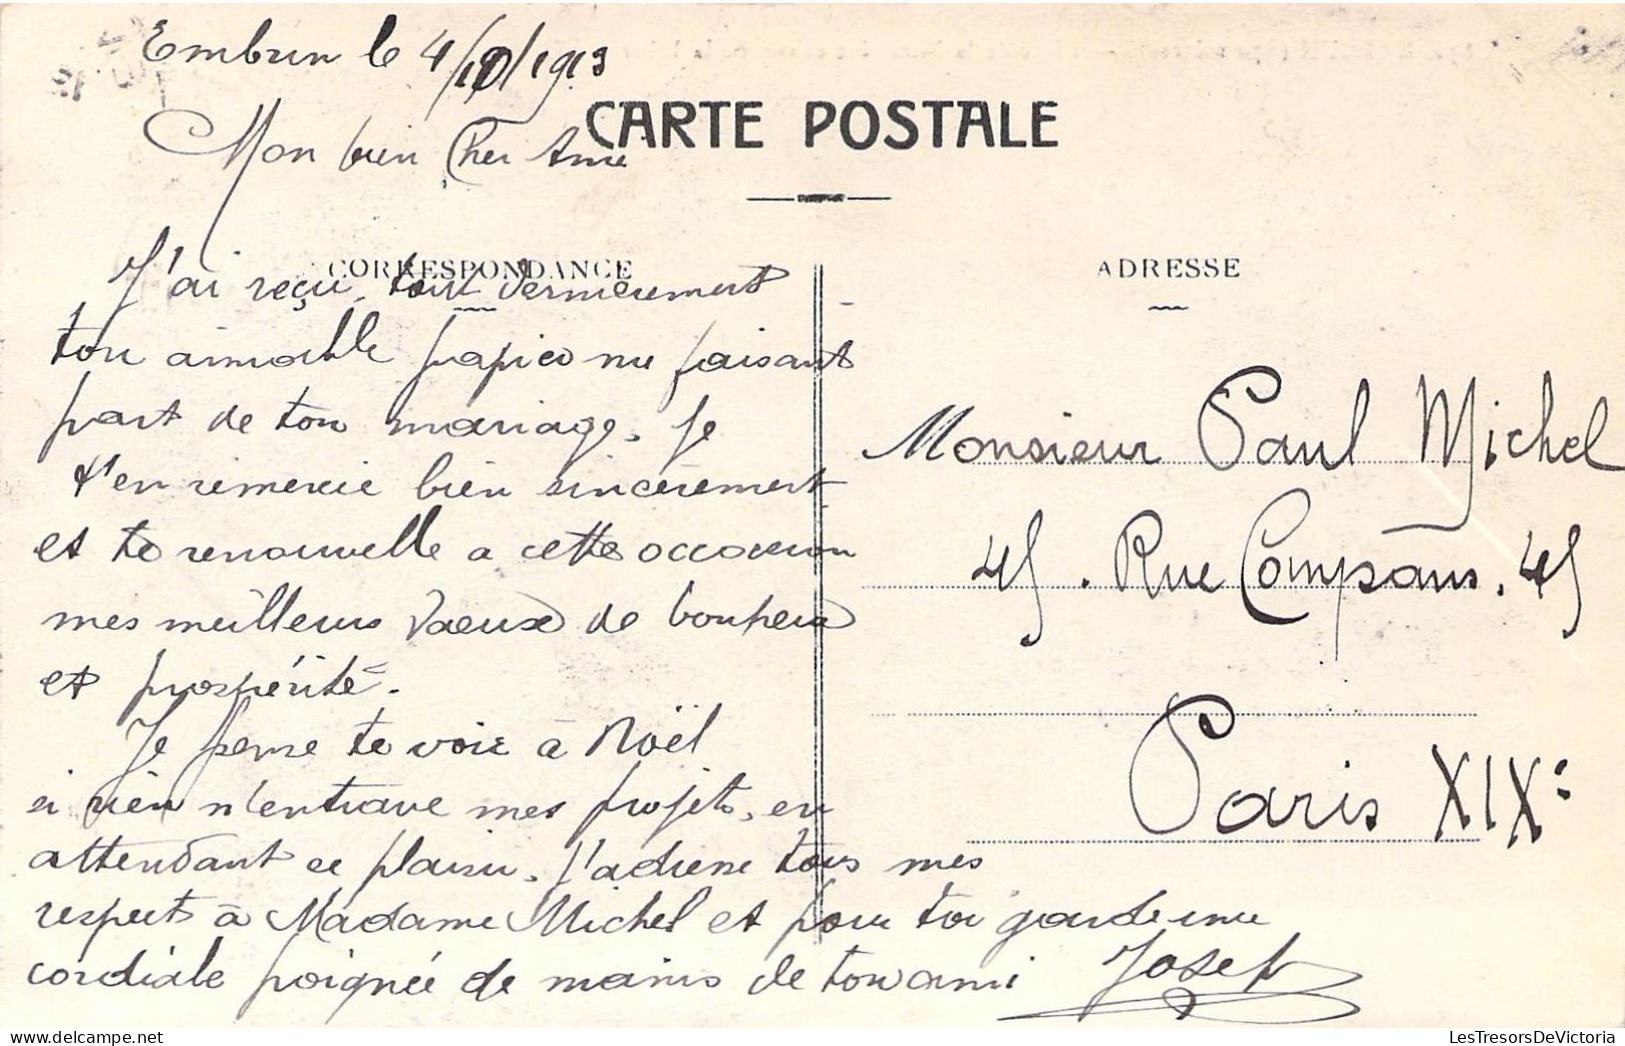 Embrun le 4/10/1913
CARTE POSTALE
Mon bien Cher Ami
CORRESPONDANCE
J'ai reçu tout dernièrement
ton aimable papier me faisant
part de ton mariage. Je
t'en remercie bien sincèrement
et te renouvelle a cette occasion
mes meilleurs vœux de bonheur
et prospérité.
Je pense te voir à Noël
si rien n'entrave mes projets, en
attendant ce plaisir, j'adresse tous mes
respects à Madame Michel et pour toi garde une
cordiale poignée de mains de ton ami Josef
ADRESSE
Monsieur Paul Michel
45. Rue Compans. 45
Paris XIXe
LesTresorsDeVictoria